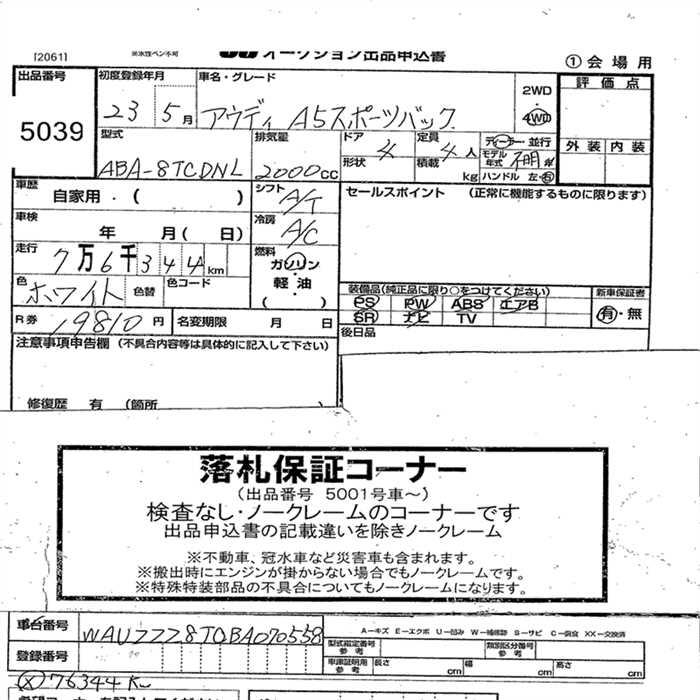 [2061] ※水性ペン不可 オークション出品申込書 ①会場用
出品番号 初度登録年月 車名・グレード 2WD 評価点
5039 23 5月 アウディ A5スポーツバック 4WD
型式 排気量 ドア 定員 ディーラー・並行 外装 内装
ABA-8TCDNL 2000cc 形状 4 積載 4人 モデル年式 不明 年
kg ハンドル 左・右
車歴 シフト セールスポイント (正常に機能するものに限ります)
自家用・( ) A/T
車検 冷房
年 月( 日) A/C
走行 燃料
7万6千344km ガソリン
色 色コード 軽油
ホワイト 色替 ( ) 装備品(純正品に限り○をつけてください) 新車保証書
PS PW ABS エアB 有・無
R券 19810円 名変期限 月 日 SR ナビ TV
注意事項申告欄 (不具合内容等は具体的に記入して下さい) 後日品
修復歴 有 (箇所
落札保証コーナー
(出品番号 5001号車~)
検査なし・ノークレームのコーナーです
出品申込書の記載違いを除きノークレーム
※不動車、冠水車など災害車も含まれます。
※搬出時にエンジンが掛からない場合でもノークレームです。
※特殊特装部品の不具合についてもノークレームになります。
車台番号 WAUZZZ8T0BA070558 A-キズ E-エクボ U-凹み W-補修跡 S-サビ C-腐食 XX-交換済
型式指定番号 参考 類別区分番号 参考
登録番号 車庫証明用 参考 長さ cm 幅 cm 高さ cm
76344K